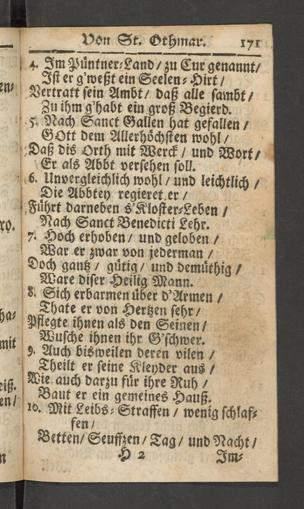 Von St. Othmar. 171
4. Im Püntner-Land/ zu Cur genannt/
Ist er g'weßt ein Seelen-Hirt/
Vertratt sein Ambt/ daß alle sambt/
Zu ihm g'habt ein groß Begierd.
5. Nach Sanct Gallen hat gefallen/
GOtt dem Allerhöchsten wohl/
Daß dis Orth mit Werck/ und Wort/
Er als Abbt versehen soll.
6. Unvergleichlich wohl/ und leichtlich/
Die Abbtey regieret er/
Führt darneben s'Kloster-Leben/
Nach Sanct Benedicti Lehr.
7. Hoch erhoben/ und geloben/
War er zwar von jederman/
Doch gantz/ gütig/ und demüthig/
Ware diser Heilig Mann.
8. Sich erbarmen über d'Armen/
Thate er von Hertzen sehr/
Pflegte ihnen als den Seinen/
Wusche ihnen ihr G'schwer.
9. Auch bisweilen deren vilen/
Theilt er seine Kleyder aus/
Wie auch darzu für ihre Ruh/
Baut er ein gemeines Hauß.
10. Mit Leibs-Straffen/ wenig schlaf-
fen/
Betten/ Seufftzen/ Tag/ und Nacht/
H 2 Im-